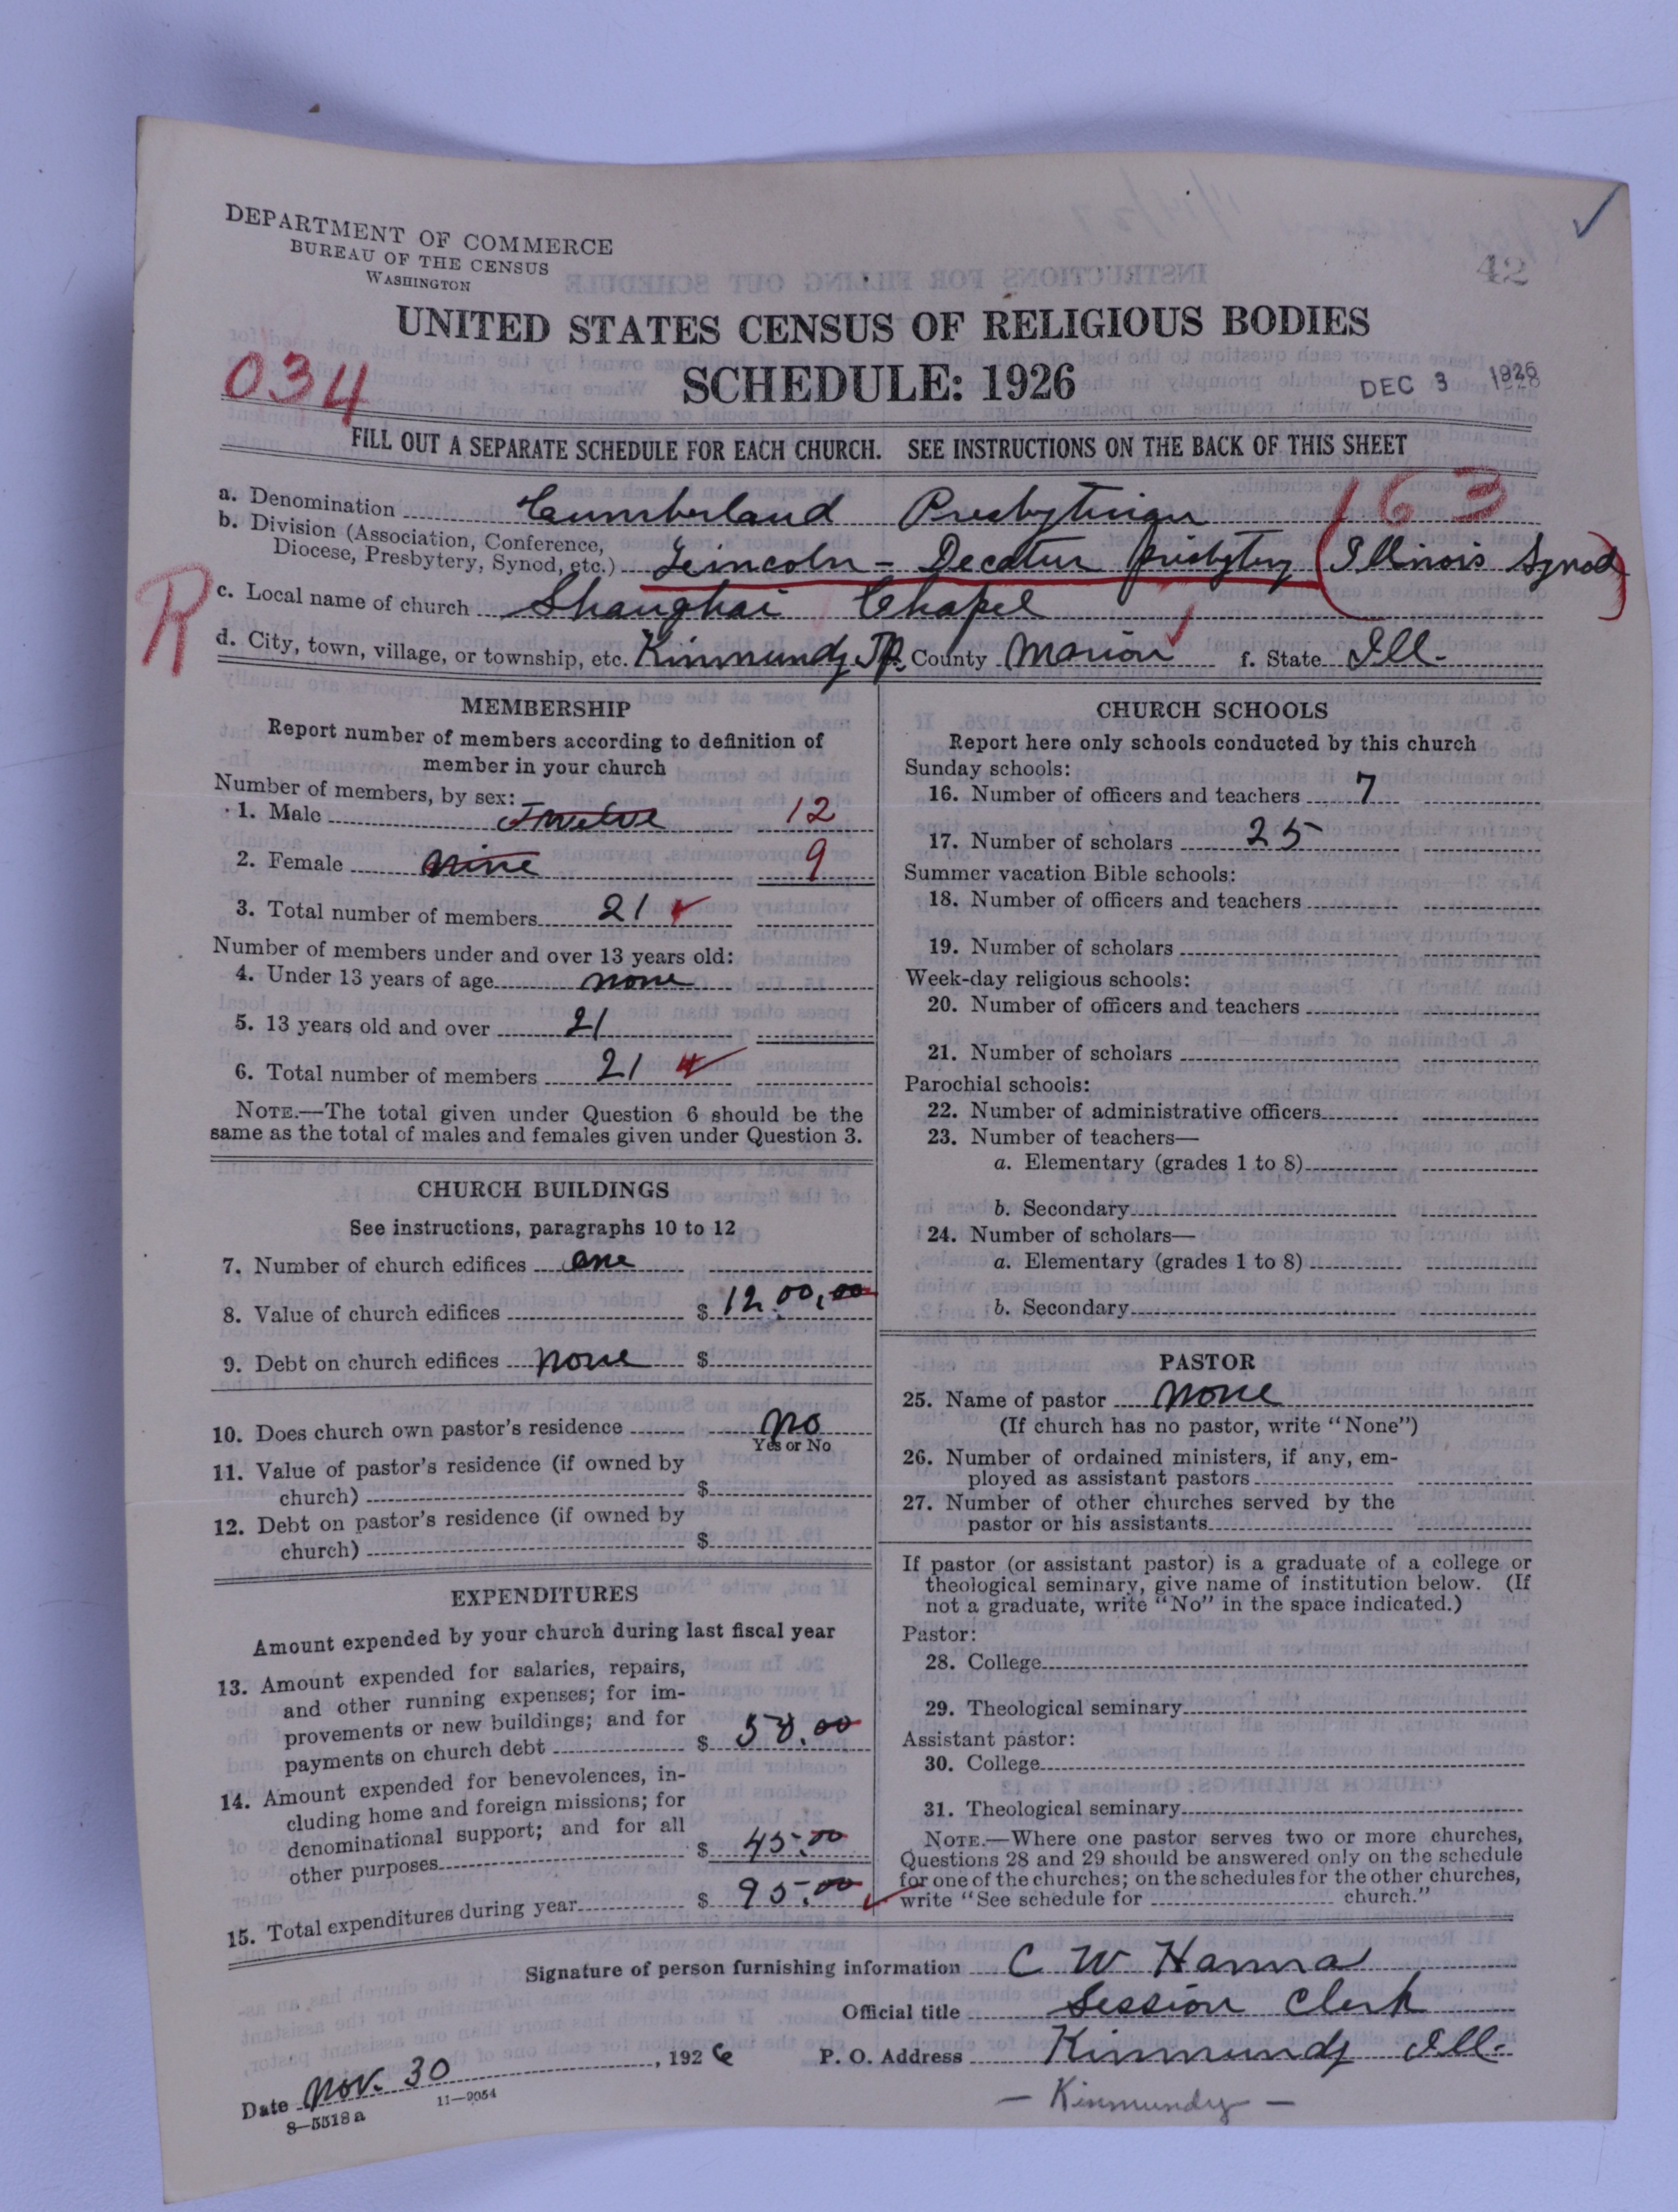 DEPARTMENT OF COMMERCE
BUREAU OF THE CENSUS
WASHINGTON
42
UNITED STATES CENSUS OF RELIGIOUS BODIES
034
SCHEDULE: 1926
DEC 3 1926
FILL OUT A SEPARATE SCHEDULE FOR EACH CHURCH. SEE INSTRUCTIONS ON THE BACK OF THIS SHEET
163
a. Denomination Cumberland Presbyterian
b. Division (Association, Conference,
Diocese, Presbytery, Synod, etc.) Lincoln - Decatur presbytery (Illinois Synod)
R
c. Local name of church Shanghai Chapel
d. City, town, village, or township, etc. Kinmundy TP. County Marion f. State Ill.
MEMBERSHIP
Report number of members according to definition of
member in your church
Number of members, by sex:
1. Male Twelve 12
2. Female nine 9
3. Total number of members 21
Number of members under and over 13 years old:
4. Under 13 years of age none
5. 13 years old and over 21
6. Total number of members 21
NOTE.—The total given under Question 6 should be the
same as the total of males and females given under Question 3.
CHURCH BUILDINGS
See instructions, paragraphs 10 to 12
7. Number of church edifices one
8. Value of church edifices $ 1200.00
9. Debt on church edifices none $
10. Does church own pastor's residence no
Yes or No
11. Value of pastor's residence (if owned by
church) $
12. Debt on pastor's residence (if owned by
church) $
EXPENDITURES
Amount expended by your church during last fiscal year
13. Amount expended for salaries, repairs,
and other running expenses; for im-
provements or new buildings; and for
payments on church debt $ 50.00
14. Amount expended for benevolences, in-
cluding home and foreign missions; for
denominational support; and for all
other purposes $ 45.00
15. Total expenditures during year $ 95.00
CHURCH SCHOOLS
Report here only schools conducted by this church
Sunday schools:
16. Number of officers and teachers 7
17. Number of scholars 25
Summer vacation Bible schools:
18. Number of officers and teachers
19. Number of scholars
Week-day religious schools:
20. Number of officers and teachers
21. Number of scholars
Parochial schools:
22. Number of administrative officers
23. Number of teachers—
a. Elementary (grades 1 to 8)
b. Secondary
24. Number of scholars—
a. Elementary (grades 1 to 8)
b. Secondary
PASTOR
25. Name of pastor none
(If church has no pastor, write "None")
26. Number of ordained ministers, if any, em-
ployed as assistant pastors
27. Number of other churches served by the
pastor or his assistants
If pastor (or assistant pastor) is a graduate of a college or
theological seminary, give name of institution below. (If
not a graduate, write "No" in the space indicated.)
Pastor:
28. College
29. Theological seminary
Assistant pastor:
30. College
31. Theological seminary
NOTE.—Where one pastor serves two or more churches,
Questions 28 and 29 should be answered only on the schedule
for one of the churches; on the schedules for the other churches,
write "See schedule for church."
Signature of person furnishing information C W Hanna
Official title Session Clerk
Date Nov. 30, 1926 P. O. Address Kinmundy Ill.
8—5518a 11—9054
— Kinmundy —